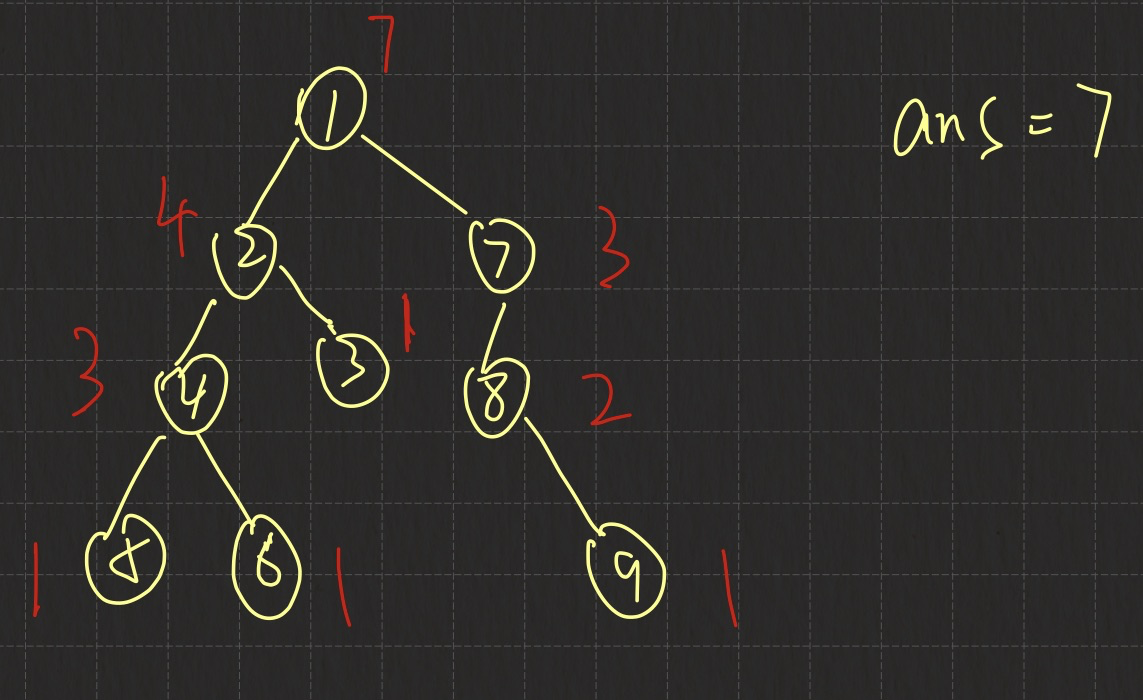 7
1
ans = 7
4 2 7 3
3 4 3 1 8 2
1 5 6 1 9 1